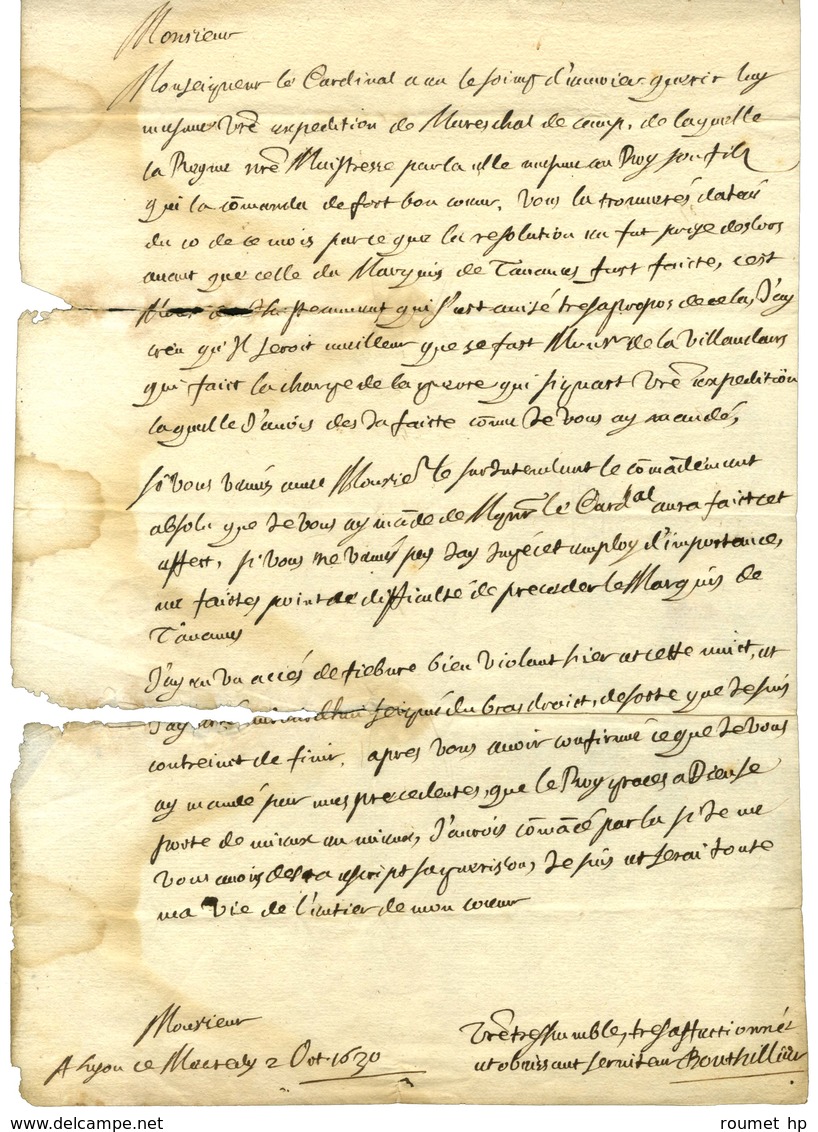 Monsieur
Monseigneur le Cardinal a eu le soing d'envoier querir luy
mesme vre expedition de Mareschal de camp, de laquelle
la Reyne nre Maistresse parla elle mesme au Roy son filz
qui la comanda de fort bon coeur, Vous la trouverés datée
du 10 de ce mois parce que la resolution en fut prise deslors
avant que celle du Marquis de Tavanes fust faicte, c'est
qui s'est avisé tres a propos de cela, J'ay
creu qu'Il seroit meilleur que ce fust Monsr de la Villauclers
qui faict la charge de la guerre qui signast vre expeditiõn
laquelle J'avois des Ja faicte come Je vous ay mandé,
Si vous venés avec Monsieur le surintendant le comãdement
absolu que Je vous ay mãdé de Mgnr le Cardal aura faict cet
effect, si vous ne venés pas Jay Jugé cet employ d'importance,
ne faictes point de difficulté de preceder le Marquis de
Tavanes
J'ay eu un accés de fiebvre bien violant hier et cette nuict, et
J'ay esté seigné du bras droict, de sorte que Je suis
contreinct de finir, apres vous avoir confirmé ce que Je vous
ay mandé par mes precedentes, que le Roy graces a Dieu se
porte de mieux en mieux, J'aurois comãcé par la si Je ne
vous avois des Ja escript sa guerison, Je suis et serai toute
ma vie de l'entier de mon coeur
Monsieur
Vre tres humble, tres affectionné
A Lyon ce Mecredy 2 Oct 1630
et obeissant serviteur Bouthillier
roumet hp